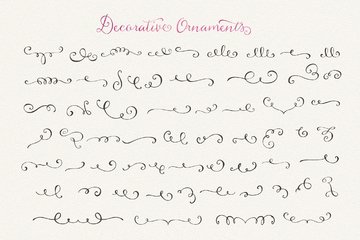 Decorative Ornaments